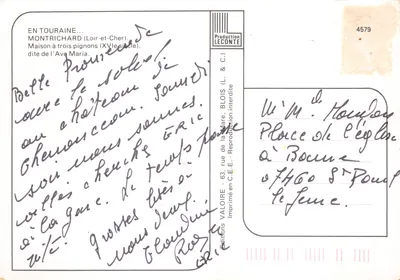 EN TOURAINE...
MONTRICHARD (Loir-et-Cher)
Maison à trois pignons (XVIe siècle),
dite de l'Ave Maria.
Belle Promenade
avec le soleil
au château de
Chenonceau. Samedi
soir nous sommes
allés chercher ERIC
à la gare. Le temps passe
vite. Grosses bises à
vous deux.
Claudine
ERIC
Editions VALOIRE - 63, rue de la , BLOIS (L. & C.)
Imprimé en C.E.E. - Reproduction interdite
L
Production
LECONTE
4579
Mr Md
Place de l'église
à Borne
07460 St Paul
le Jeune